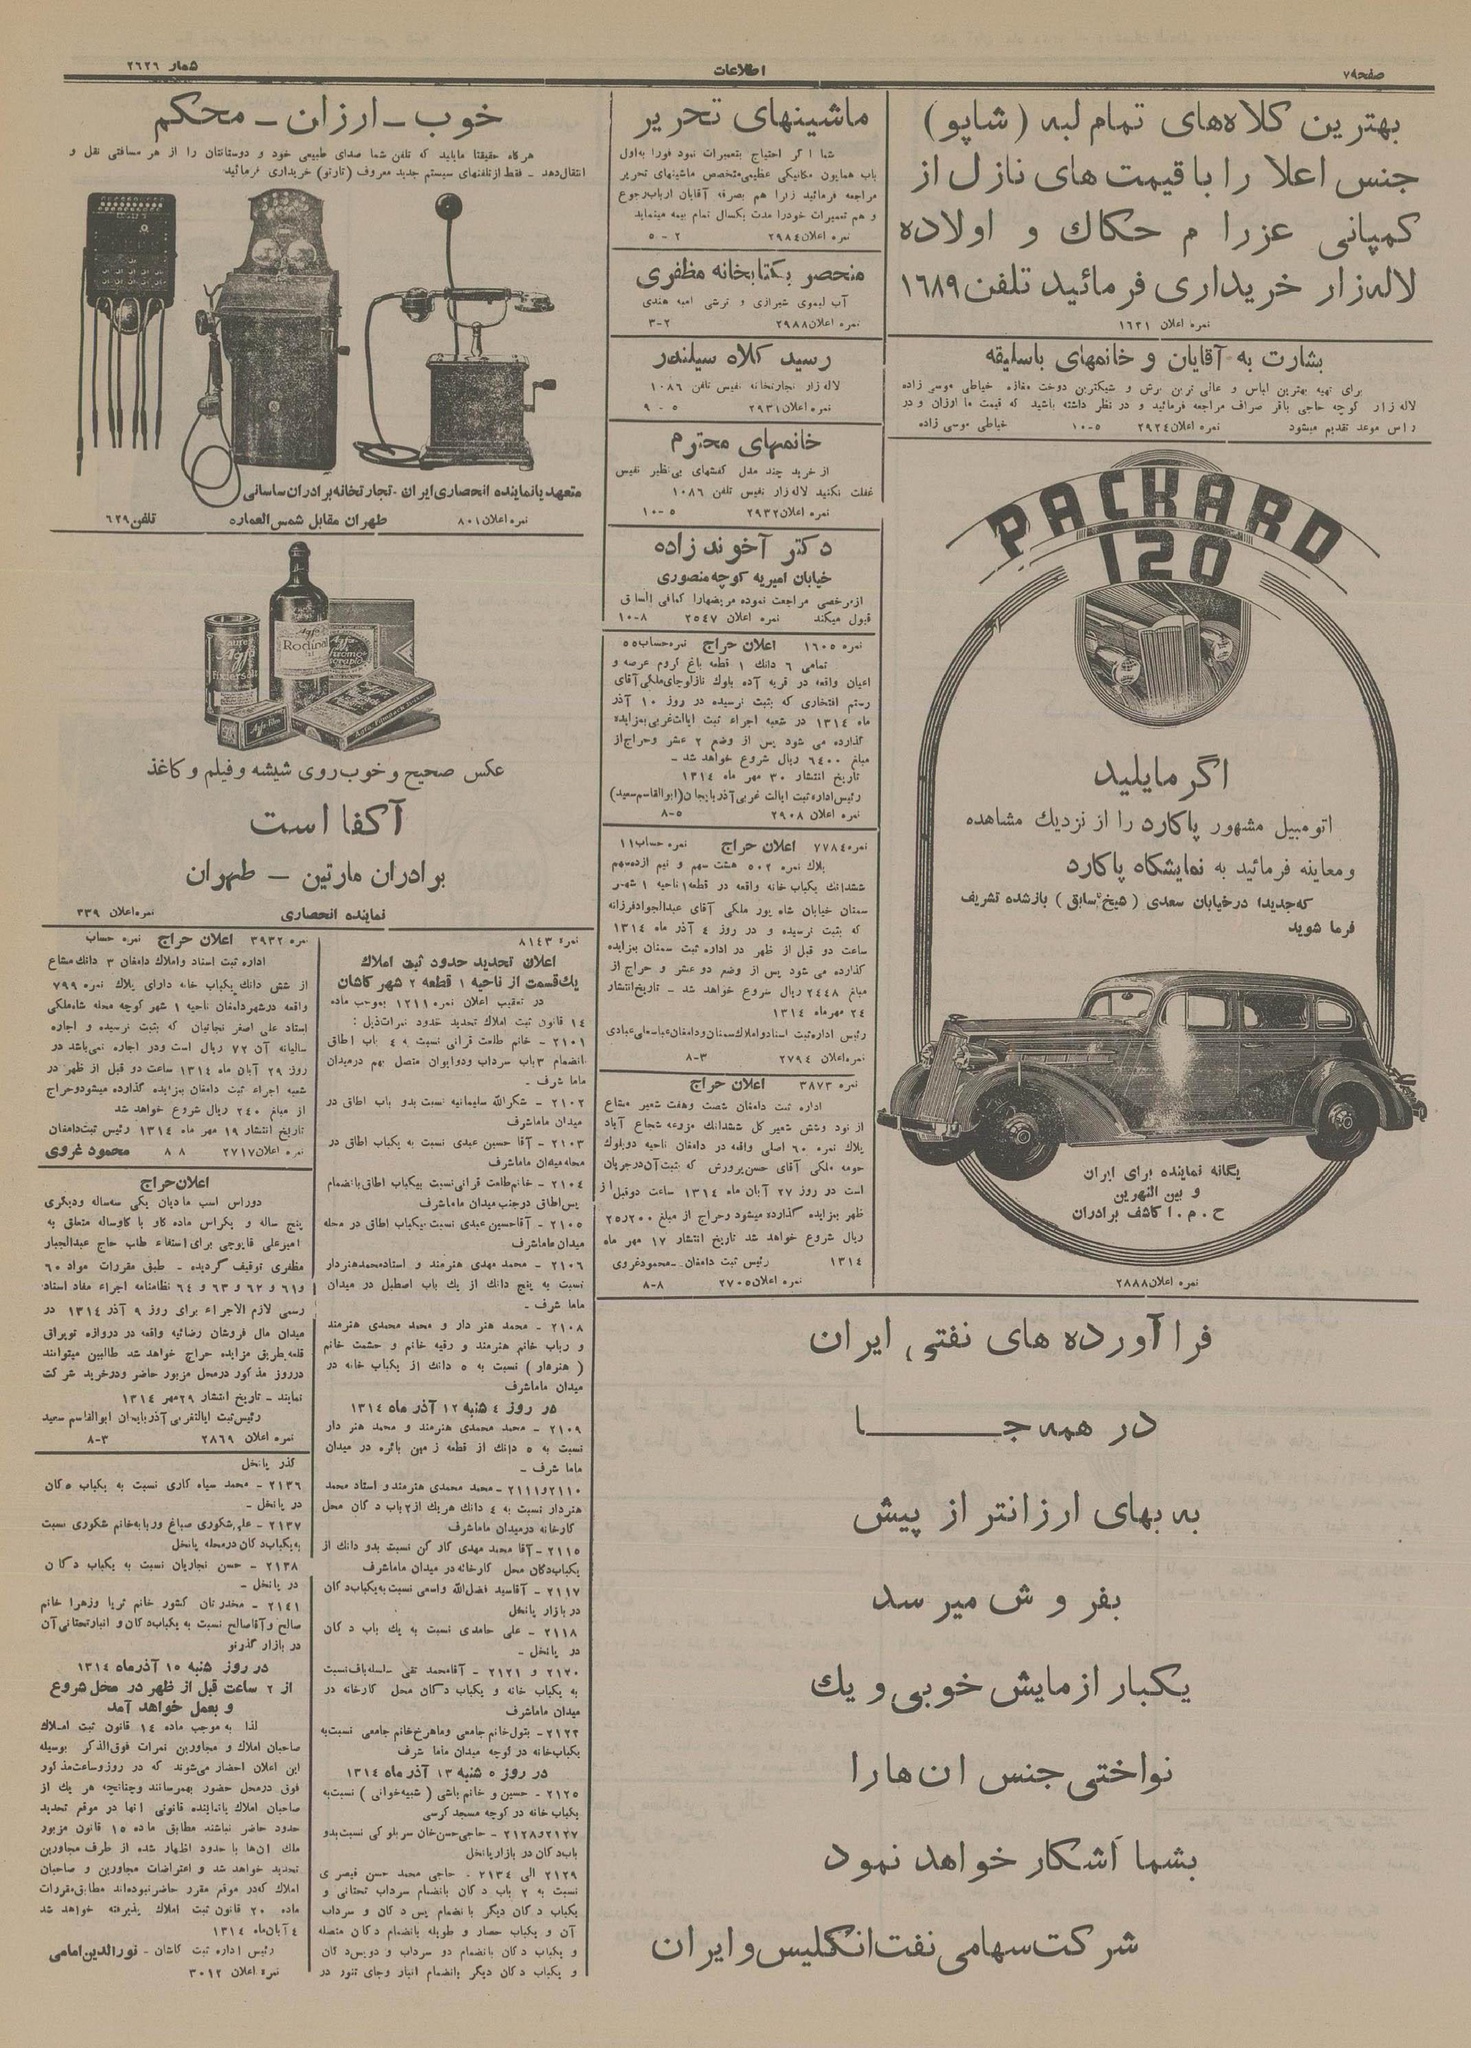 صفحه ۷
اطلاعات
شمار ۲۶۲۶
بهترین کلاه‌های تمام لبه (شاپو)
جنس اعلا را با قیمت های نازل از
کمپانی عزرا م حکاك و اولاده
لاله‌زار خریداری فرمائید تلفن ۱۶۸۹
نمره اعلان ۱۶۲۱
بشارت به آقایان و خانمهای باسلیقه
برای تهیه بهترین لباس و عالی ترین برش و شیکترین دوخت مغازه خیاطی موسی زاده
لاله زار کوچه حاجی باقر صراف مراجعه فرمائید و در نظر داشته باشید که قیمت ما ارزان و در
راس موعد تقدیم میشود نمره اعلان ۲۹۲۴ ۵-۱۰ خیاطی موسی زاده
PACKARD
120
اگر مایلید
اتومبیل مشهور پاکارد را از نزدیك مشاهده
ومعاینه فرمائید به نمایشگاه پاکارد
که‌جدیدا درخیابان سعدی ( سابق ) بازشده تشریف
فرما شوید
یگانه نماینده برای ایران
و بین النهرین
ح . م . ا کاشف برادران
نمره اعلان ۲۸۸۸
فرا آورده های نفتی ایران
در همه جــــا
به بهای ارزانتر از پیش
بفر و ش میر سد
یکبار ازمایش خوبی و یك
نواختی جنس ان هارا
بشما آشکار خواهد نمود
شرکت‌سهامی نفت‌انگلیس و ایران
ماشینهای تحریر
شما اگر احتیاج بتعمیرات نمود فورا به‌اول
باب همایون مکانیکی عظیمی متخصص ماشینهای تحریر
مراجعه فرمائید زیرا هم بصرفه آقایان ارباب‌رجوع
و هم تعمیرات خودرا مدت یکسال تمام بیمه مینماید
نمره اعلان ۲۹۸۴ ۲-۵
منحصر بکتابخانه مظفری
آب لیموی شیرازی و ترشی انبه هندی
نمره اعلان ۲۹۸۸ ۲-۳
رسید کلاه سیلندر
لاله زار تجارتخانه نفیس تلفن ۱۰۸۶
نمره اعلان ۲۹۳۱ ۵-۹
خانمهای محترم
از خرید چند مدل کفشهای بی‌نظیر نفیس
غفلت نکنید لاله زار نفیس تلفن ۱۰۸۶
نمره اعلان ۲۹۳۲ ۵-۱۰
دکتر آخوند زاده
خیابان امیریه کوچه منصوری
ازمرخصی مراجعت نموده مریضهارا کمافی السابق
قبول میکند نمره اعلان ۲۵۴۷ ۸-۱۰
نمره ۱۶۰۵ اعلان حراج نمره حساب ۵۵
تمامی ۶ دانك ۱ قطعه باغ کروم عرصه و
اعیان واقعه در قریه آده بلوك نازلوچای ملکی آقای
رستم افتخاری که بثبت نرسیده در روز ۱۰ آذر
ماه ۱۳۱۴ در شعبه اجراء ثبت ایالت‌غربی بمزایده
گذارده می شود پس از وضع ۲ عشر وحراج‌از
مبلغ ۶۴۰۰ ریال شروع خواهد شد -
تاریخ انتشار ۳۰ مهر ماه ۱۳۱۴
رئیس اداره ثبت ایالت غربی آذربایجان(ابوالقاسم سعید)
نمره اعلان ۲۹۰۸ ۵-۸
نمره ۷۷۸۴ اعلان حراج نمره حساب ۱۱
پلاك نمره ۵۰۲ هشت سهم و نیم ازده‌سهم
ششدانك یکباب خانه واقعه در قطعه ۱ ناحیه ۱ شهر
سمنان خیابان شاه پور ملکی آقای عبدالجوادفرزانه
که بثبت نرسیده و در روز ۴ آذر ماه ۱۳۱۴
ساعت دو قبل از ظهر در اداره ثبت سمنان بمزایده
گذارده می شود پس از وضع دو عشر و حراج از
مبلغ ۲۴۴۸ ریال شروع خواهد شد - تاریخ‌انتشار
۲۴ مهرماه ۱۳۱۴
رئیس اداره‌ثبت اسنادواملاك‌سمنان‌ودامغان عباسعلی عبادی
نمره اعلان ۲۷۹۴ ۳-۸
نمره ۳۸۷۳ اعلان حراج
اداره ثبت دامغان شصت وهفت شعیر مشاع
از نود وشش شعیر کل ششدانك مزرعه شجاع آباد
پلاك نمره ۶۰ اصلی واقعه در دامغان ناحیه دوبلوك
حومه ملکی آقای حسن پرورش که ثبت‌آن درجریان
است در روز ۲۷ آبان ماه ۱۳۱۴ ساعت دوقبل از
ظهر بمزایده گذارده میشود وحراج از مبلغ ۲۵ر۲۰۰
ریال شروع خواهد شد تاریخ انتشار ۱۷ مهر ماه
۱۳۱۴ رئیس ثبت دامغان - محمودغروی
نمره اعلان ۲۷۰۵ ۸-۸
خوب - ارزان - محکم
هرگاه حقیقتا مایلید که تلفن شما صدای طبیعی خود و دوستانتان را از هر مسافتی نقل و
انتقال‌دهد - فقط ازتلفنهای سیستم جدید معروف (تارتو) خریداری فرمائید
متعهد یانماینده انحصاری ایران - تجارتخانه برادران ساسانی
نمره اعلان ۸۰۱ طهران مقابل شمس العماره تلفن ۶۲۹
Agfa
Fixiersalz
Rodinal
Agfa film
عکس صحیح و خوب روی شیشه و فیلم و کاغذ
آکفا است
برادران مارتین - طهران
نماینده انحصاری نمره اعلان ۳۳۹
نمره ۸۱۴۳
اعلان تحدید حدود ثبت املاك
یك‌قسمت از ناحیه ۱ قطعه ۲ شهر کاشان
در تعقیب اعلان نمره ۱۲۱۱ بموجب ماده
۱۴ قانون ثبت املاك تحدید حدود نمرات‌ذیل :
۲۱۰۱ - خانم طلعت قرانی نسبت به ۴ باب اطاق
بانضمام ۳باب سرداب ودوایوان متصل بهم درمیدان
ماما شرف -
۲۱۰۲ - شکرالله سلیمانیه نسبت بدو باب اطاق در
میدان ماماشرف
۲۱۰۳ - آقا حسین عبدی نسبت به یکباب اطاق در
محله میدان ماماشرف
۲۱۰۴ - خانم‌طلعت قرانی‌نسبت بیکباب اطاق بانضمام
پس‌اطاق درجنب میدان ماماشرف
۲۱۰۵ - آقاحسین عبدی نسبت بیکباب اطاق در محله
میدان ماماشرف
۲۱۰۶ - محمد مهدی هنرمند و استادمحمدهنردار
نسبت به پنج دانك از یك باب اصطبل در میدان
ماما شرف -
۲۱۰۸ - محمد هنر دار و محمد محمدی هنرمند
و رباب خانم هنرمند و رقیه خانم و حشمت خانم
( هنرمدار ) نسبت به ۵ دانك از یکباب خانه در
میدان ماماشرف
در روز ۴ شنبه ۱۲ آذر ماه ۱۳۱۴
۲۱۰۹ - محمد محمدی هنرمند و محمد هنر دار
نسبت به ۵ دانك از قطعه زمین بائره در میدان
ماما شرف -
۲۱۱۰و۲۱۱۱ - محمد محمدی هنرمند و استاد محمد
هنردار نسبت به ۴ دانك هریك از۲باب دکان محل
کارخانه درمیدان ماماشرف
۲۱۱۵ - آقا محمد مهدی کارکن نسبت بدو دانك از
یکباب‌دکان محل کارخانه در میدان ماماشرف
۲۱۱۷ - آقاسید فضل‌الله واسعی نسبت به یکباب‌دکان
در بازار پانخل
۲۱۱۸ - علی حامدی نسبت به یك باب دکان
در پانخل -
۲۱۲۰ و ۲۱۲۱ - آقامحمد تقی نسبت
به یکباب خانه و یکباب دکان محل کارخانه در
میدان ماماشرف
۲۱۲۲ - بتول‌خانم جامعی وماهرخ‌خانم جامعی نسبت‌به
یکباب‌خانه در کوچه میدان ماما شرف
در روز ۵ شنبه ۱۳ آذر ماه ۱۳۱۴
۲۱۲۵ - حسین و خانم باشی ( شبیه‌خوانی ) نسبت‌به
یکباب خانه در کوچه مسجد کرسی
۲۱۲۷و۲۱۲۸ - حاجی‌حسن‌خان سربلوکی نسبت‌بدو
باب‌دکان در بازارپانخل
۲۱۲۹ الی ۲۱۳۴ - حاجی محمد حسن قیصری
نسبت به ۲ باب دکان بانضمام سرداب تحتانی و
یکباب دکان دیگر بانضمام پس دکان و سرداب
آن و یکباب حصار و طویله بانضمام دکان متصله
و یکباب دکان بانضمام دو سرداب و دوپس‌دکان
و یکباب دکان دیگر بانضمام انبار وجای تنور در
نمره ۳۹۳۲ اعلان حراج نمره حساب
اداره ثبت اسناد واملاك دامغان ۳ دانك مشاع
از شش دانك یکباب خانه دارای پلاك نمره ۷۹۹
واقعه درشهردامغان ناحیه ۱ شهر کوچه محله شاه‌ملکی
استاد علی اصغر نجاتیان که بثبت نرسیده و اجاره
سالیانه آن ۷۲ ریال است ودر اجاره نمی‌باشد در
روز ۲۹ آبان ماه ۱۳۱۴ ساعت دو قبل از ظهر در
شعبه اجراء ثبت دامغان بمزایده گذارده میشودوحراج
از مبلغ ۲۴۰ ریال شروع خواهد شد
تاریخ انتشار ۱۹ مهر ماه ۱۳۱۴ رئیس ثبت‌دامغان
نمره اعلان ۲۷۱۷ ۸ ۸ محمود غروی
اعلان‌حراج
دوراس اسب مادیان یکی سه‌ساله ودیگری
پنج ساله و یکراس ماده گاو با گاوساله متعلق به
امیرعلی قاپوچی برای استیفاء طلب حاج عبدالجبار
مظفری توقیف گردیده - طبق مقررات مواد ۶۰
و۶۱ و ۶۲ و ۶۳ و ۶۴ نظامنامه اجراء مفاد اسناد
رسمی لازم الاجراء برای روز ۹ آذر ۱۳۱۴ در
میدان مال فروشان رضائیه واقعه در دروازه توپراق
قلعه‌بطریق مزایده حراج خواهد شد طالبین میتوانند
درروز مذکور درمحل مزبور حاضر ودرخرید شرکت
نمایند - تاریخ انتشار ۲۹مهر ۱۳۱۴
رئیس‌ثبت ایالت‌غربی آذربایجان ابوالقاسم سعید
نمره اعلان ۲۸۶۹ ۳-۸
گذر پانخل
۲۱۳۶ - محمد سیاه کاری نسبت به یکباب دکان
در پانخل -
۲۱۳۷ - علی‌شکوری صباغ وربابه‌خانم شکوری نسبت
به‌یکباب‌دکان درمحله پانخل
۲۱۳۸ - حسن نجاریان نسبت به یکباب دکان
در پانخل -
۲۱۴۱ - مخدرتان کشور خانم ثریا وزهرا خانم
صالح و آقاصالح نسبت به یکباب‌دکان و انبارتحتانی آن
در بازار گذرنو
در روز شنبه ۱۵ آذرماه ۱۳۱۴
از ۲ ساعت قبل از ظهر در محل شروع
و بعمل خواهد آمد
لذا به موجب ماده ۱۴ قانون ثبت املاك
صاحبان املاك و مجاورین نمرات فوق‌الذکر بوسیله
این اعلان احضار می‌شوند که در روزوساعت‌مذکور
فوق درمحل حضور بهمرسانند وچنانچه هر یك از
صاحبان املاك یانماینده قانونی انها در موقع تحدید
حدود حاضر نباشند مطابق ماده ۱۵ قانون مزبور
ملك ان‌ها با حدود اظهار شده از طرف مجاورین
تحدید خواهد شد و اعتراضات مجاورین و صاحبان
املاك که‌در موقع مقرر حاضرنبوده‌اند مطابق‌مقررات
ماده ۲۰ قانون ثبت املاك پذیرفته خواهد شد
۴ آبان‌ماه ۱۳۱۴
رئیس اداره ثبت کاشان - نورالدین‌امامی
نمره اعلان ۳۰۱۲